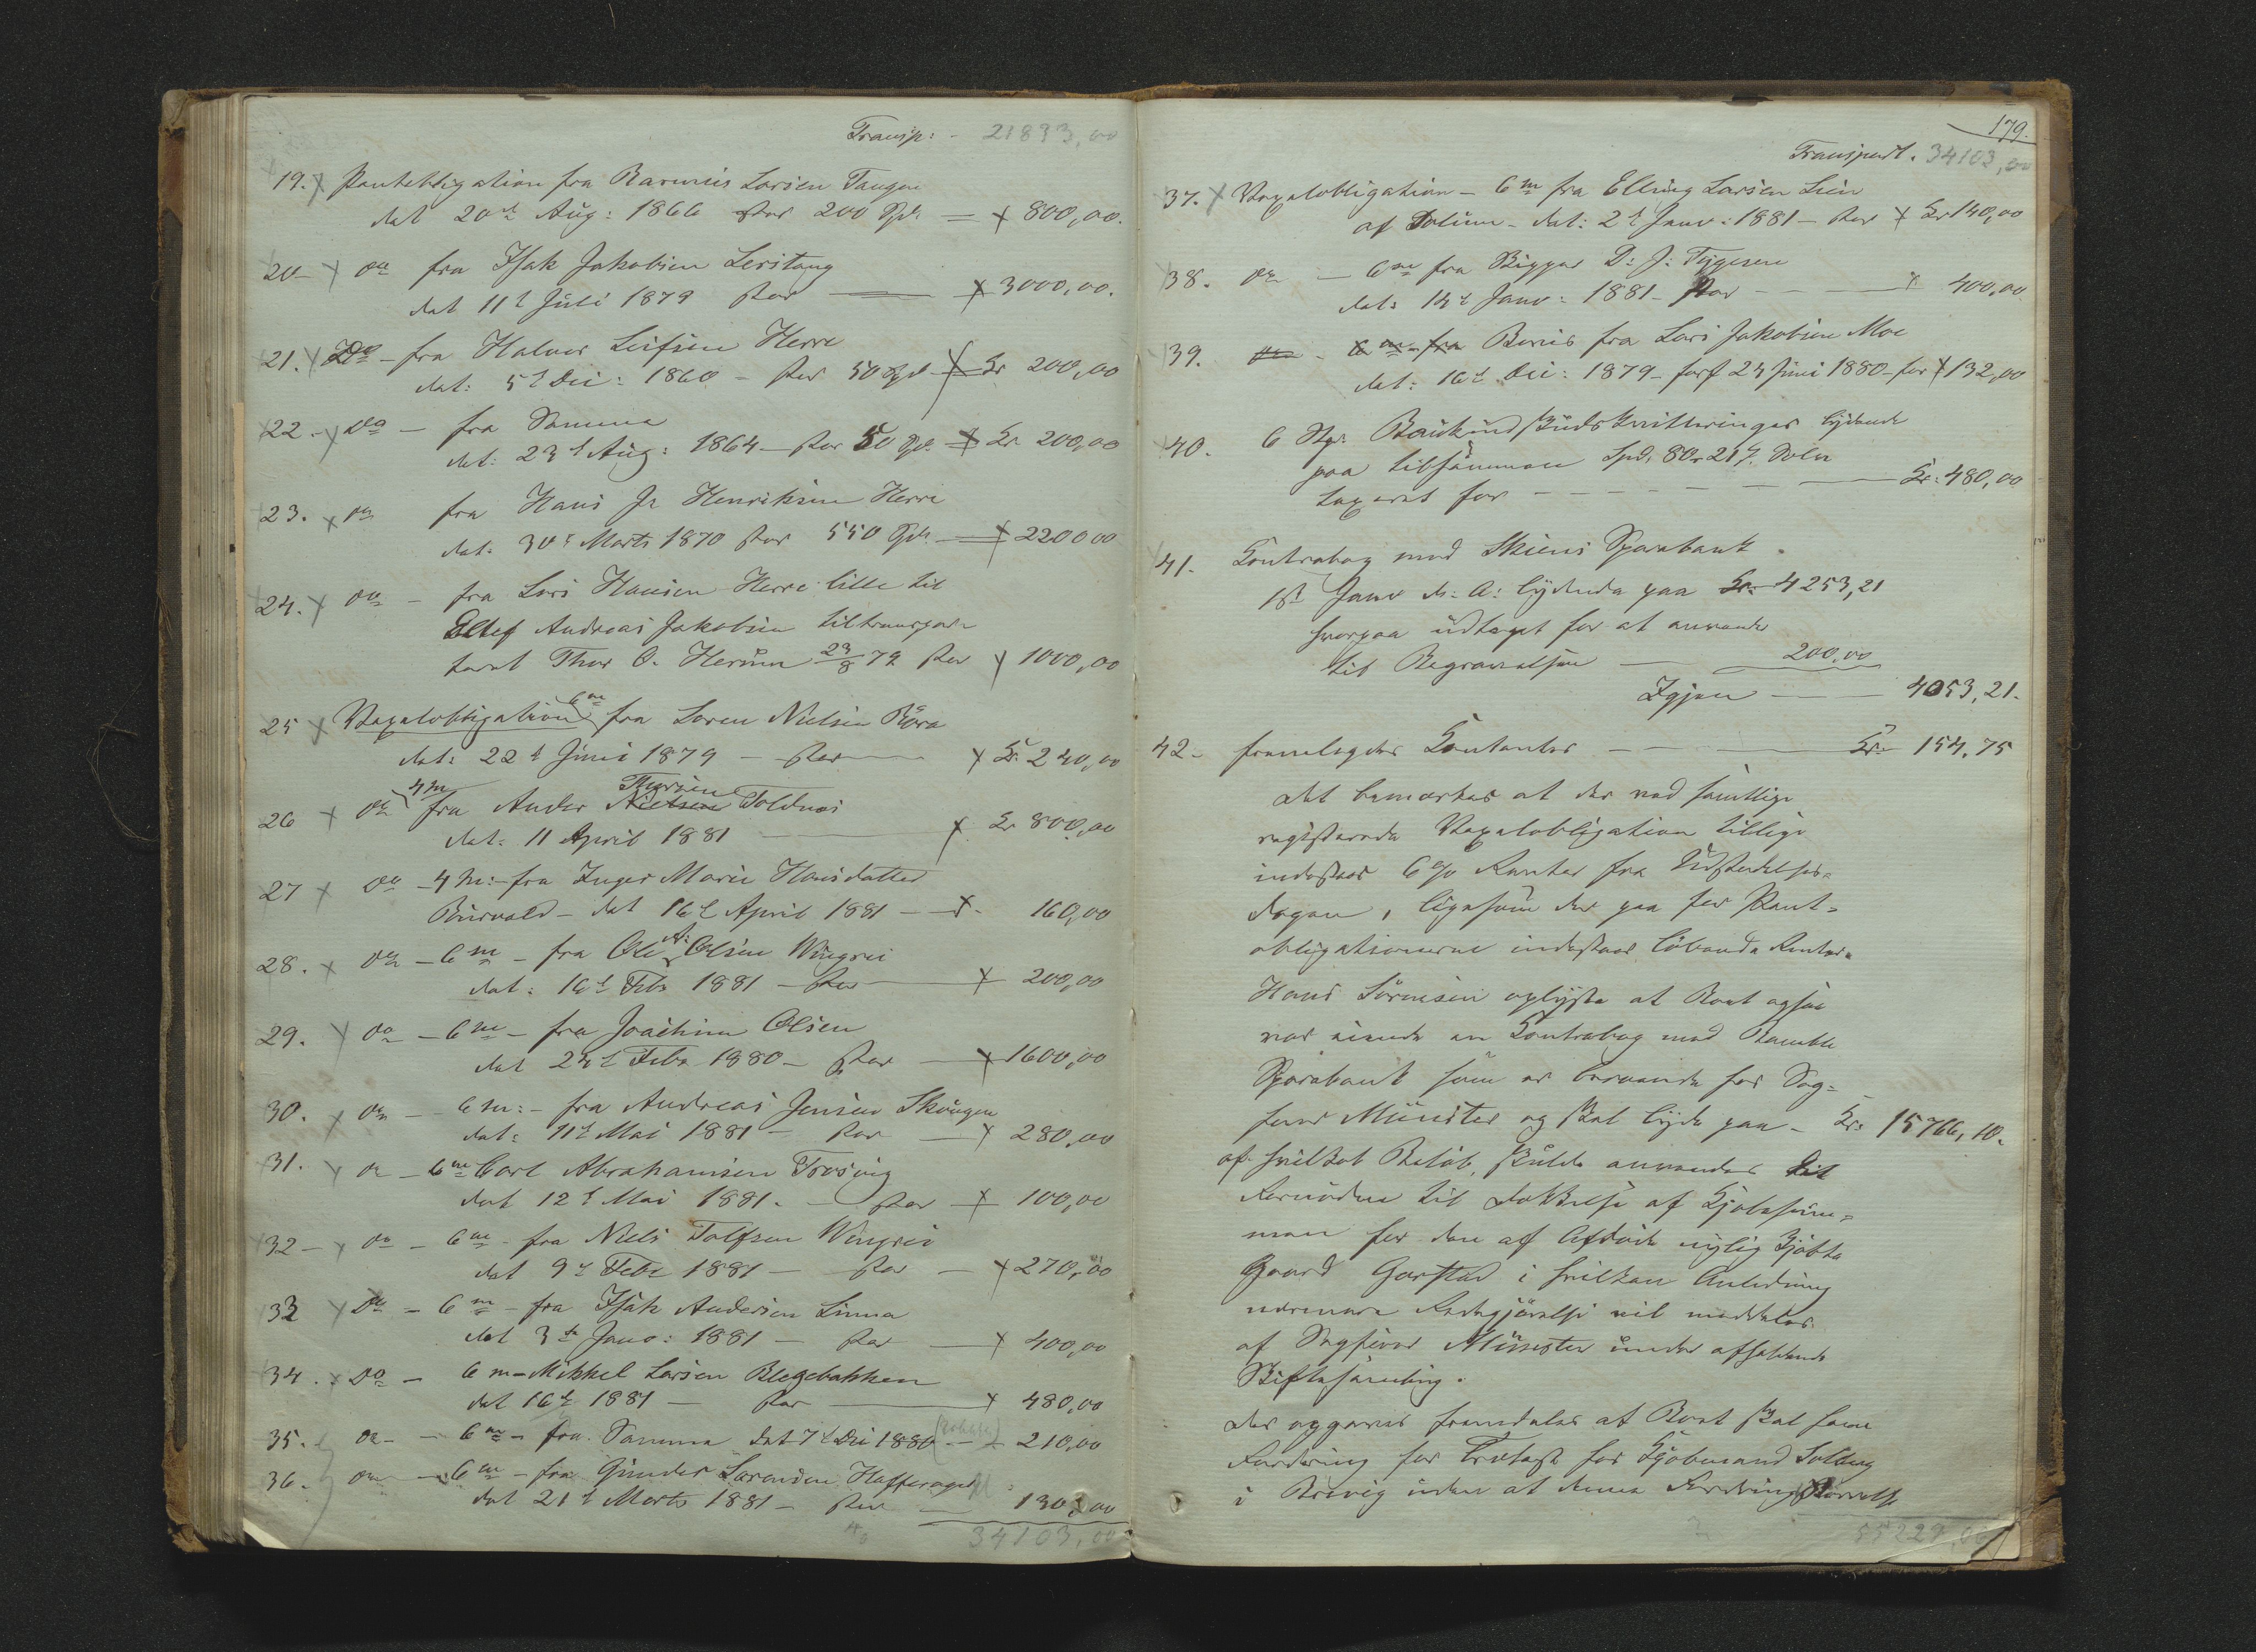 Transp: - 21833,00
19. x Panteobligation fra Rasmus Larsen Tangen
dat 20de Aug: 1866 stor 200 Spd = x 800,00.
20 - x do fra Isak Jakobsen Leritang
dat 11t Juli 1879 stor x 3000,00.
21. x Do - fra Halvor Leifsen Herre
dat: 5t Dec: 1860 - stor 50 Spd x Kr 200,00
22. - x do - fra Samme
dat: 23d Aug: 1864 - stor 50 Spd. x Kr 200,00
23. x do fra Hans Jr Henriksen Herre
dat: 30t Marts 1870 stor 550 Spd. x 2200 00
24. x do - fra Lars Hansen Herre lille til
Ellef Andreas Jakobsen tiltranspor-
teret Thor O. Herum 23/8 79 stor x 1000,00
25 x Vexelobligation 6m fra Soren Nielsen Röra
dat: 22d Juni 1879 - stor x Kr. 240,00
26 x do 4m fra Ander Nielsen Thorsen Toldnes
dat: 11 April 1881 x Kr 800,00
27 x do - 4 m: fra Inger Marie Hansdatter
dat 16t April 1881 - x - 160,00
28. x do - 6m - fra Ole A: Olsen Wingrei
dat: 16d Febr 1881 - stor x 200,00
29. x do - 6m - fra Joachim Olsen
dat 24t Febr 1880 - stor - x 1600,00
30. x do - 6m: - fra Andreas Jensen Skougen
dat: 11t Mai 1881 - stor - x 280,00
31. x do - 6m Carl Abrahamsen Trosvig
dat 12t Mai 1881. - stor x 100,00
32 - x do - 6m - fra Niels Tolfsen Wingrei
dat 9t Febr 1881 - stor - x 270,00
33 x Do - 6m - fra Isak Andersen Linna
dat 3de Janv: 1881 - stor - x 400,00
34. x Do - 6 m - Mikkel Larsen Blegebakken
dat 16de 1881 - stor x 480,00
35. do - - 6m - fra Samme dat 7t Dec 1880 - x 210,00
36. do - 6m - fra Gunder Sorensen
dat 21d Marts 1881 - stor - 130,00
34103,00
179.
Transport. 34103,00
37. x Vexelobligation - 6m fra Elling Larsen Lien
af Solum - dat: 2d Janv: 1881 - stor x Kr 140,00
38. do - 6m fra Skipper D: J: Tygesen
dat: 14t Janv: 1881 - stor - - x 400,00
39. do - 6m - fra Bevis fra Lars Jakobsen Moe
dat: 16d Dec: 1879 - forf 24 Juni 1880 - for x 132,00
40. 6 Stk. lydende
paa tilsammen Spd. 80 - 21 s.
taxeret for - - - - - Kr: 480,00
41. Contrabog med Skiens Sparebank
1st Janv d: A: lydende paa Kr: 4253,21
hvorpaa udtaget for at anvende
til Begravelsen - 200,00
Igjen - - 4053,21.
42 - fremlagdes Contanter - Kr. 154,75
Det bemærkes at der ved samtlige
registerede Vexelobligation tillige
indestaar 6 % Renter fra Udstedelses-
dagen, ligesom der paa for Pant-
obligationerne indestaar løbende Renter.
Hans Sörensen oplyste at Boet ogsaa
var eiende en Contrabog med Bamble
Sparebank som er beroende hos Sag-
förer Münster og skal lyde paa - Kr: 15766,10.
af hvilket Beløb, skulde anvendes det
fornødne til Dækkelse af Kjøbesum-
men for den af Afdøde nylig kjøbte
Gaard Grøstad i hvilken Anledning
nærmere Redegjørelse vil meddeles
af Sagfører Münster under afholdende
Skiftesamling.
Der opgaves fremdeles at Boet skal have
Fordring for hos Kjøbmand Solberg
i Brevig uden at denne Fordrings Størrelse
55229,06